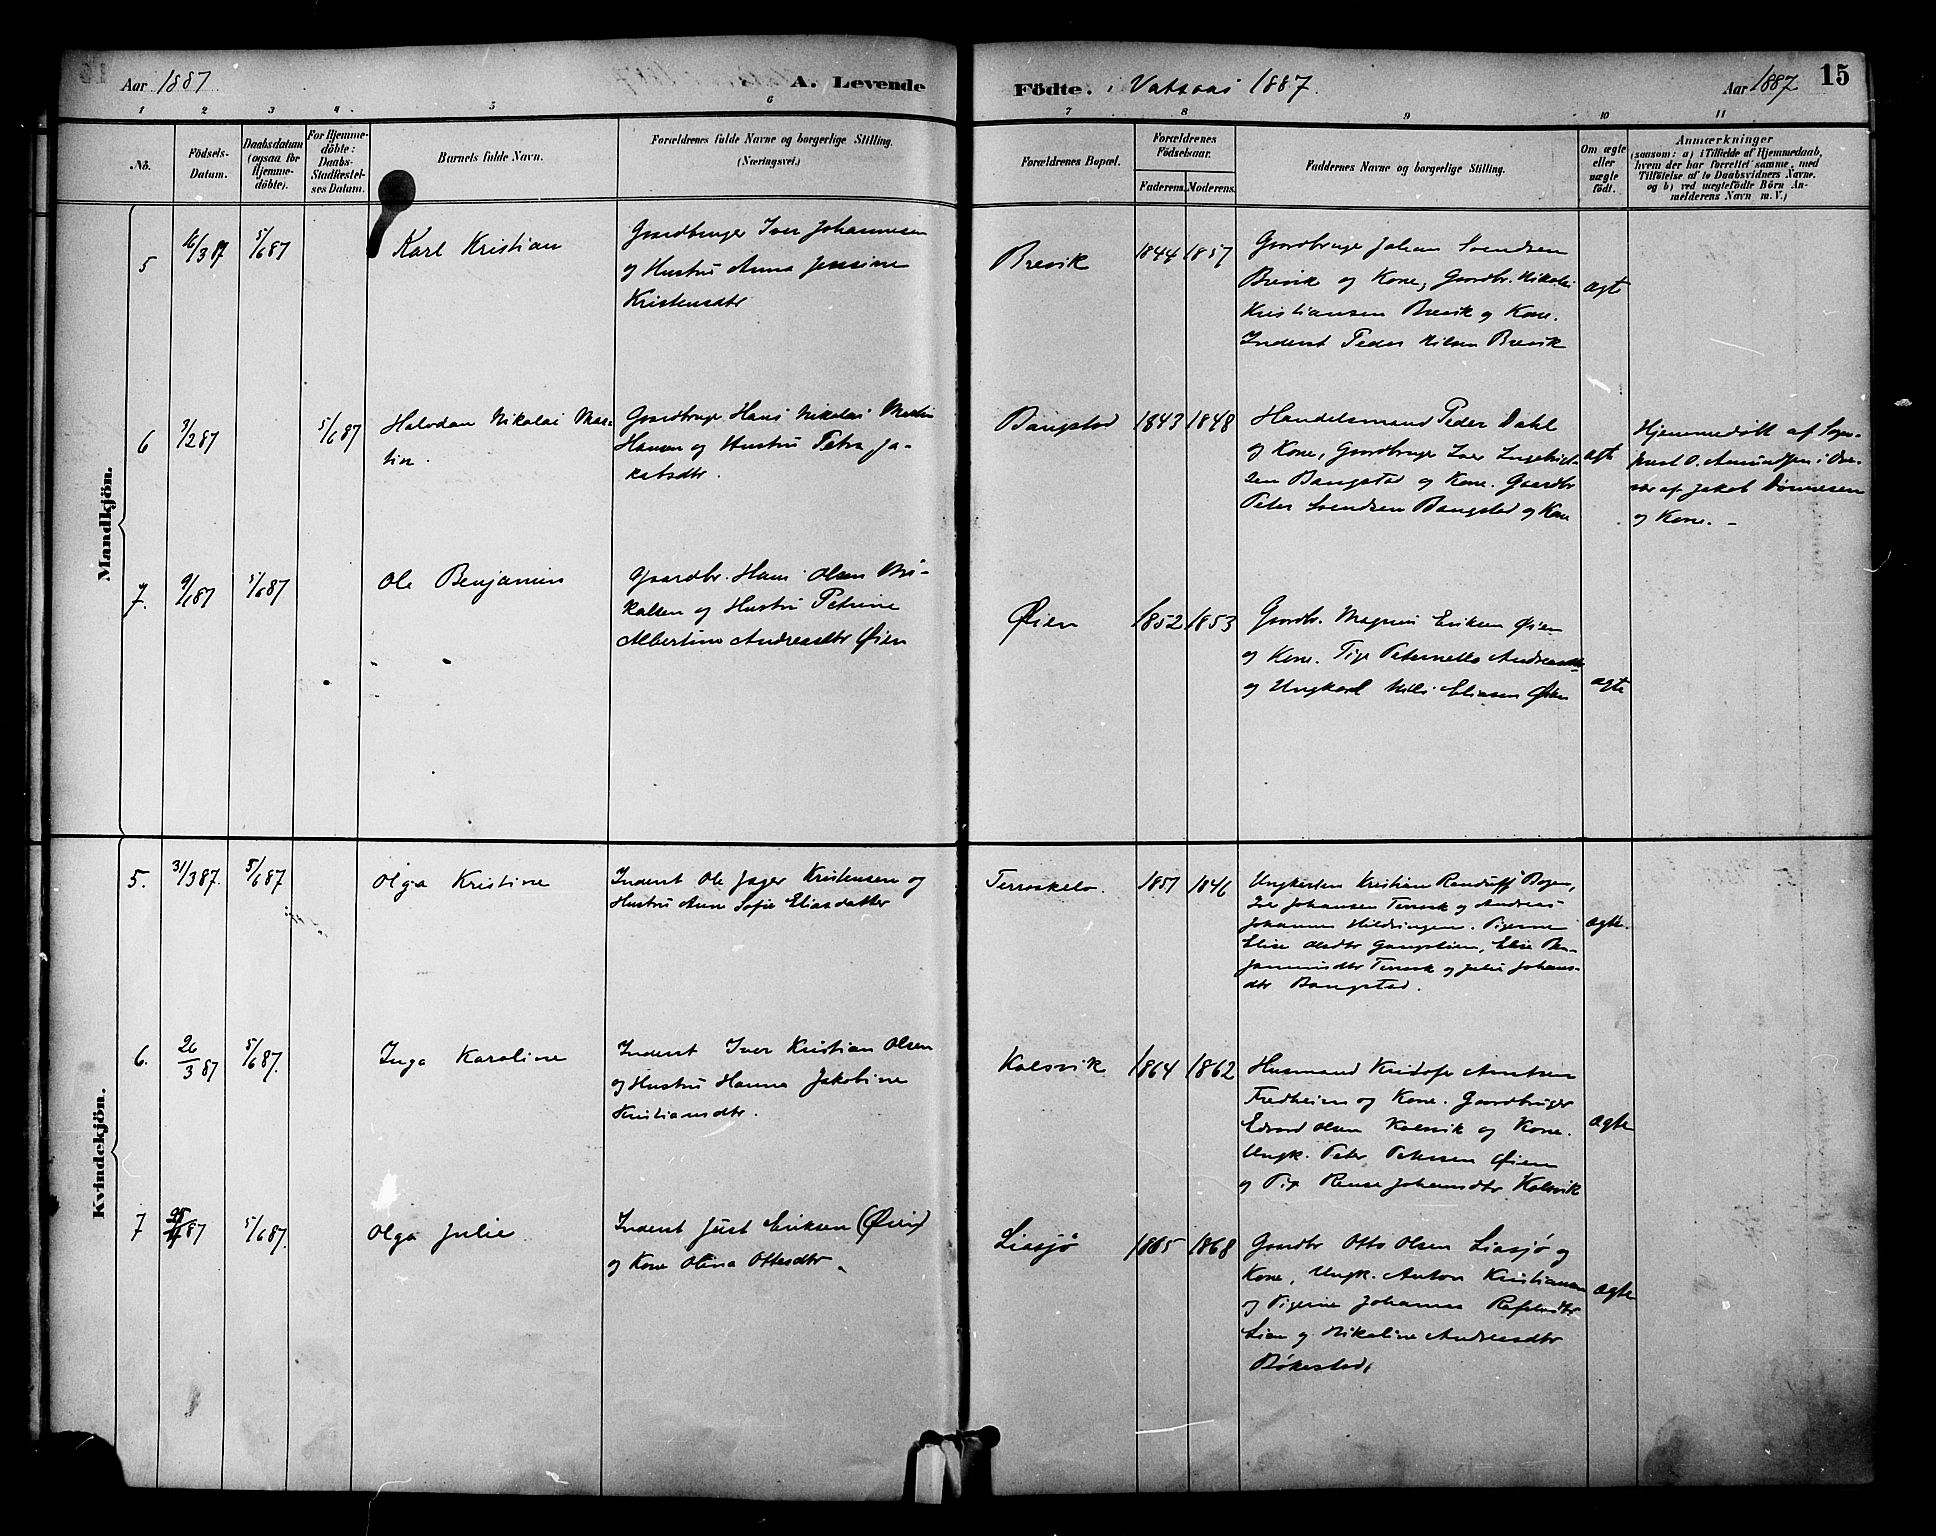 Aar 1887
A. Levende
Födte. i Vatsaas 1887.
Aar 1887
15
1 2 3 4 5 6 7 8 9 10 11
No.
Födsels-
Datum.
Daabsdatum
(ogsaa for
Hjemme-
döbte).
For Hjemme-
döbte:
Daabs-
Stadfæstel-
ses Datum.
Barnets fulde Navn.
Forældrenes fulde Navne og borgerlige Stilling.
(Næringsvei.)
Forældrenes Bopæl.
Forældrenes
Födselsaar.
Faderens. Moderens.
Faddernes Navne og borgerlige Stilling.
Om ægte
eller
uægte
födt.
Anmærkninger
(saasom: a) i Tilfælde af Hjemmedaab,
hvem der har forrettet samme, med
Tilföielse af to Daabsvidners Navne.
og b) ved uægtefödte Börn An-
melderens Navn m. V.)
Mandkjön.
5
16/3 87
5/6 87
Karl Kristian
Gaardbruger Iver Johannesen
og Hustru Anna Jensine
Kristensdtr
Brevik
1844 1857
Gaardbruge Johan Svendsen
Brevik og Kone, Gaardbr. Nikolai
Kristiansen Brevik og Kone.
Inderst Peder Nilsen Brevik
ægte
6
3/2 87
5/6 87
Halvdan Nikolai Mar-
tin.
Gaardbruge Hans Nikolai Martin
Hansen og Hustru Petra Ja-
kobsdtr.
Bangstad
1843 1848
Handelsmand Peder Dahl
og Kone, Gaardbruge Iver Ingebrigt-
sen Bangstad og Kone. Gaardbr
Peter Svendsen Bangstad og Kone
ægte
Hjemmedöbt af Sogne-
prest O. Amundsen i
af Jakob Dönnesen
og Kone. -
7.
9/1 87
5/6 87
Ole Benjamin
Gaardbr. Hans Olsen Mi-
kalsen og Hustru Petrine
Albertine Andreasdtr Øien
Øien
1852 1853
Gaardbr. Magnus Eriksen Øien
og Kone. Pige Peternella Andreasdtr
og Ungkarl Nils Eliasen Øien
ægte
Kvindekjön.
5.
31/3 87.
5/6 87
Olga Kristine
Inderst Ole Jager Kristensen og
Hustru Ane Sofie Eliasdatter
Terraskelv.
1857 1846
Ungkarlen Kristian Bogen,
Johansen Terrask og Andreas
Johannes Hildringen. Pigerne
Elise Olsdtr Gangstöien, Elise Ben-
jaminsdtr Terrask og Julie Johans-
dtr Bangstad.
ægte.
6.
26/3 87
5/6 87.
Inga Karoline
Inderst Iver Kristian Olsen
og Hustru Hanna Jakobine
Kristiansdtr.
Kalsvik
1864 1862
Husmand Kristofer Arntsen
Fredheim og Kone. Gaardbruger
Edvard Olsen Kalsvik og Kone.
Ungk. Peter Petersen Øien
og Pige Johansdtr Kalsvik
ægte
7
87
5/6 87.
Olga Julie
Inderst Just Eriksen (Øien)
og Kone Olina Ottesdtr.
Liasjö
1865 1868
Gaardbr Otto Olsen Liasjö og
Kone, Ungk. Anton Kristiansen
og Pigerne Johanna Rafaelsdtr
Lien og Nikoline Andreasdtr
Bökestad,
ægte